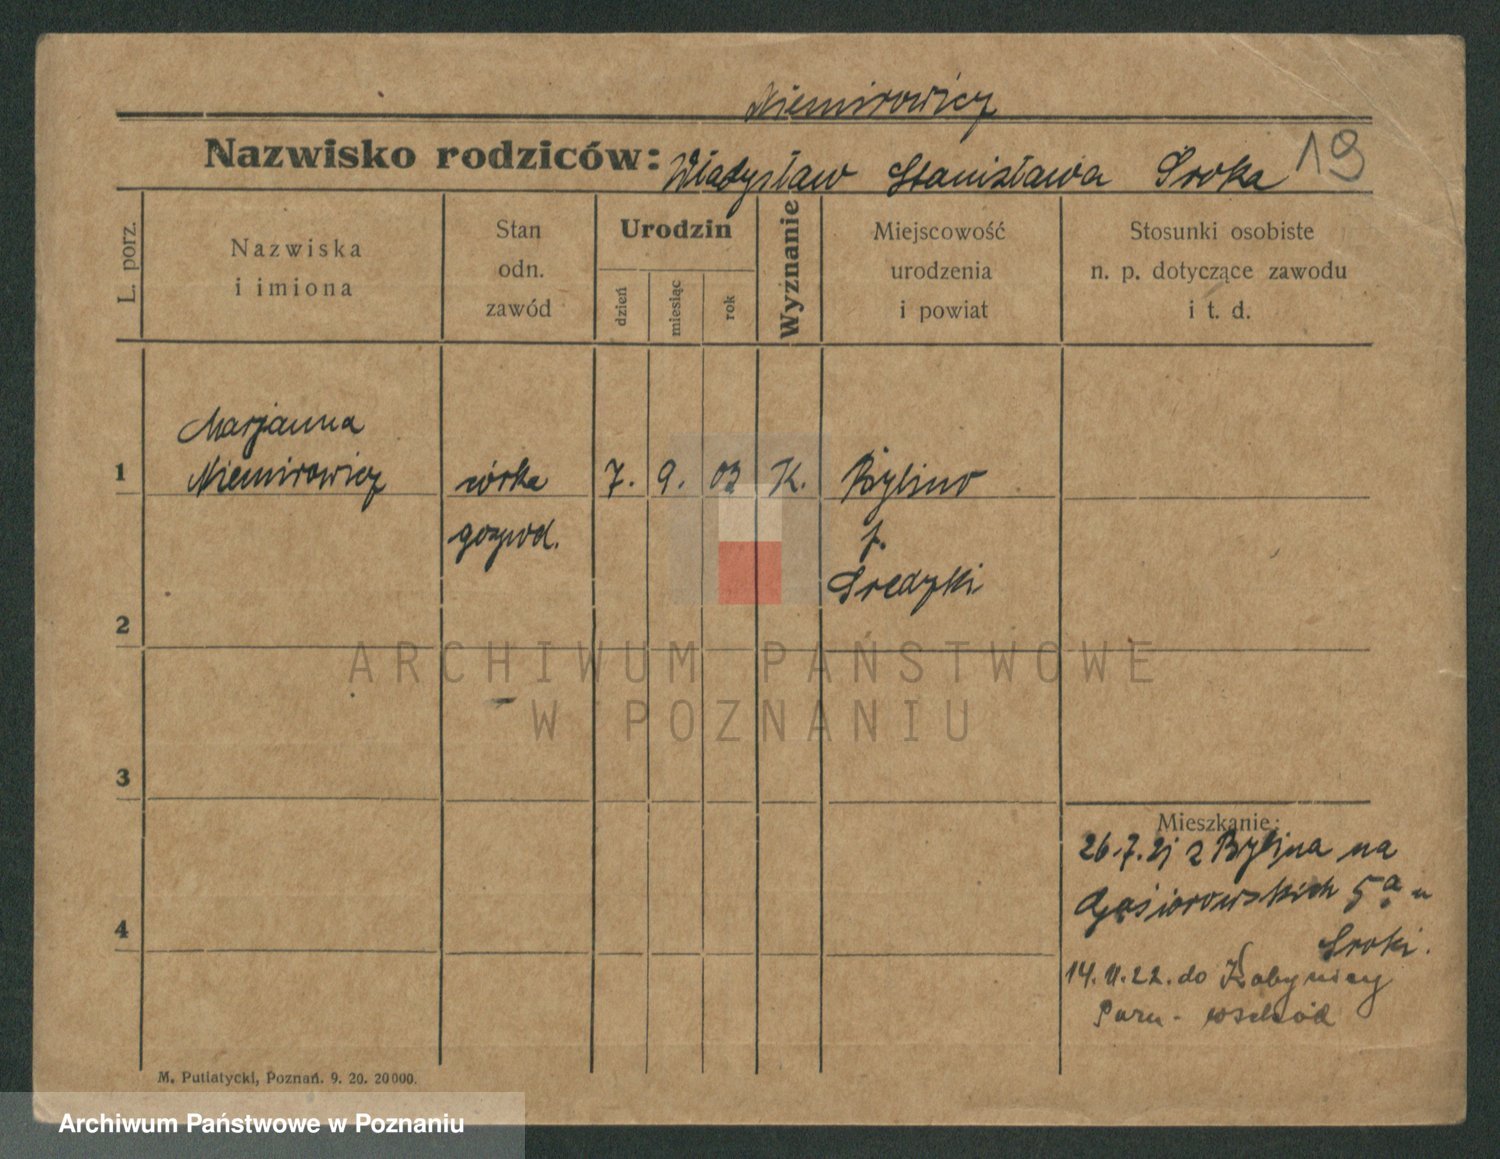 Niemirowicz
Nazwisko rodziców: Władysław Stanisława Sroka 19
L. porz.
Nazwiska
i imiona
Stan
odn.
zawód
Urodzin
dzień
miesiąc
rok
Wyznanie
Miejscowość
urodzenia
i powiat
Stosunki osobiste
n. p. dotyczące zawodu
i t. d.
Marjanna
1 Niemirowicz córka 7. 9. 03 K. Bylino
gospod. p.
Sredzki
2
ARCHIWUM PAŃSTWOWE
W POZNANIU
3
Mieszkanie:
26.7.21 z Bylina na
Gąsiorowskich 5a u
4
Sroki.
14. 11. 22. do Kobylnicy
Pozn - wschód
M. Putiatycki, Poznań. 9. 20. 20000.
Archiwum Państwowe w Poznaniu